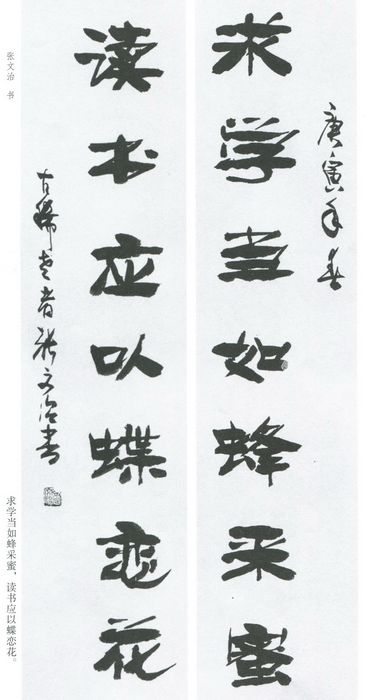 庚寅年春
求学当如蜂采蜜
读书应以蝶恋花
古稀老者张文治书
张文治 书
求学当如蜂采蜜，读书应以蝶恋花。